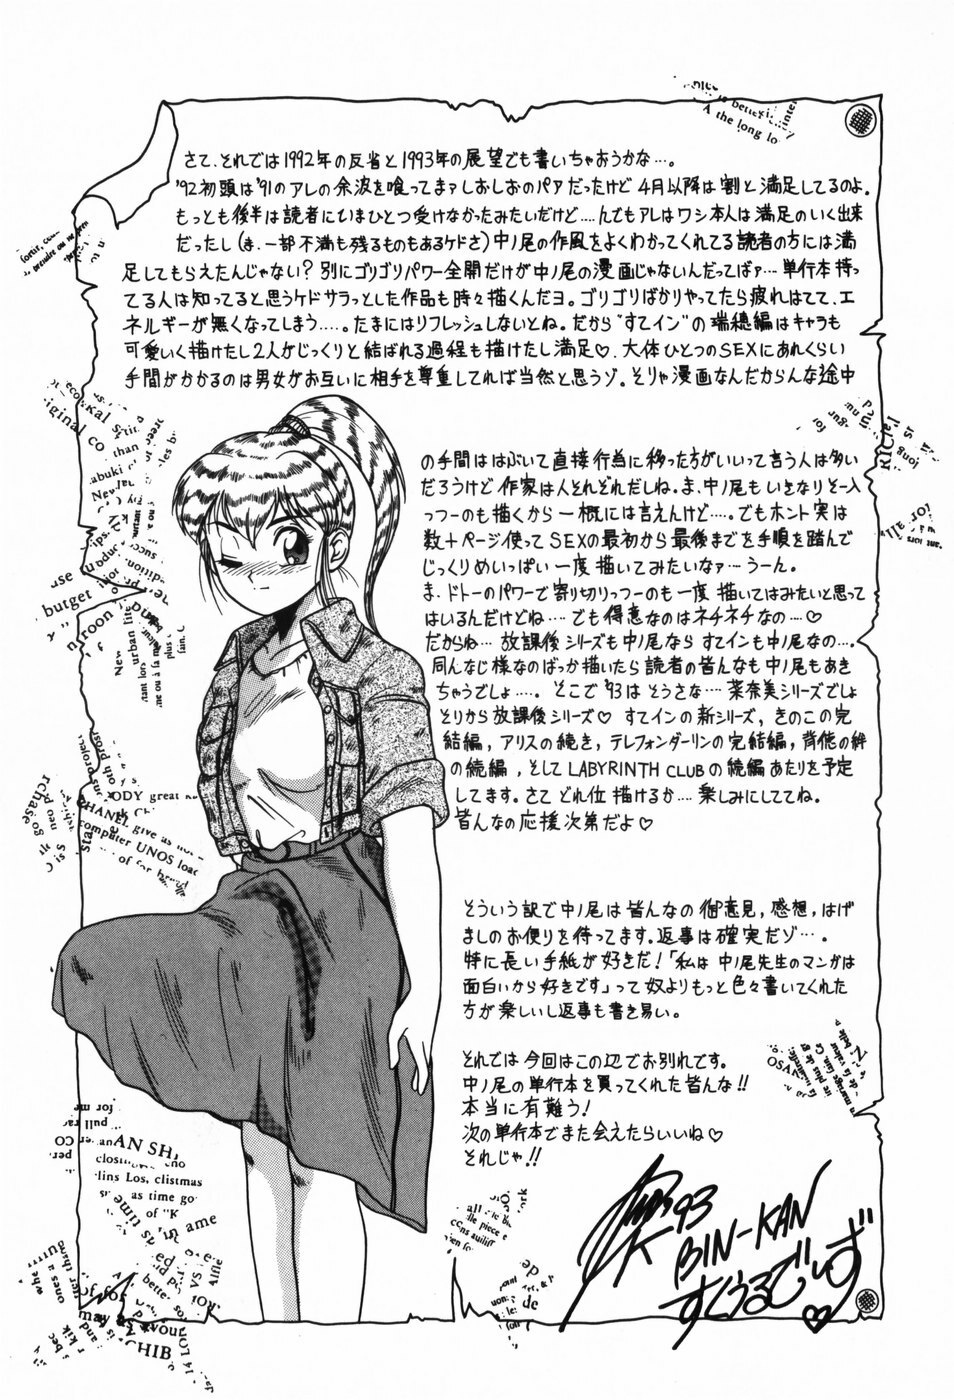 さて、それでは1992年の反省と1993年の展望でも書いちゃおうかな…。
'92初頭は'91のアレの余波を喰ってまァしおしおのパアだったけど4月以降は割と満足してるのよ。
もっとも後半は読者にいまひとつ受けなかったみたいだけど‥‥んでもアレはワシ本人は満足のいく出来
だったし(き、一部不満も残るものもあるケドさ)中ノ尾の作風をよくわかってくれてる読者の方には満
足してもらえたんじゃない?別にゴリゴリパワー全開だけが中ノ尾の漫画じゃないんだってばァ…単行本持っ
てる人は知ってると思うケドサラっとした作品も時々描くんだヨ。ゴリゴリばかりやってたら疲れはてて、エ
ネルギーが無くなってしまう‥‥。たまにはリフレッシュしないとね。だから"すてイン"の瑞穂編はキャラも
可愛いく描けたし2人がじっくりと結ばれる過程も描けたし満足♡。大体ひとつのSEXにあれくらい
手間がかかるのは男女がお互いに相手を尊重してれば当然と思うゾ。そりゃ漫画なんだからんな途中
の手間ははぶいて直接行為に移った方がいいって言う人は多い
だろうけど作家は人それぞれだしね。ま、中ノ尾もいきなりそー入
っつーのも描くから一概には言えんけど‥‥。でもホント実は
数十ページ使ってSEXの最初から最後までを手順を踏んで
じっくりめいっぱい一度描いてみたいなァ…うーん。
ま、ドトーのパワーで寄り切りっつーのも一度描いてはみたいと思って
はいるんだけどね…でも得意なのはネチネチなの‥‥♡
だからね…放課後シリーズも中ノ尾ならすてインも中ノ尾なの…。
同んなじ様なのばっか描いたら読者の皆んなも中ノ尾もあき
ちゃうでしょ‥‥。そこで'93はそうさな…菜奈美シリーズでしょ
そりから放課後シリーズ♡すてインの新シリーズ,きのこの完
結編,アリスの続き,テレフォンダーリンの完結編,背徳の絆
の続編,そしてLABYRINTH CLUBの続編あたりを予定
してます。さてどれ位描けるか‥‥楽しみにしててね。
皆んなの応援次第だよ♡
そういう訳で中ノ尾は皆んなの御意見,感想,はげ
ましのお便りを待ってます。返事は確実だゾ…。
特に長い手紙が好きだ!「私は中ノ尾先生のマンガは
面白いから好きです」って奴よりもっと色々書いてくれた
方が楽しいし返事も書き易い。
それでは今回はこの辺でお別れです。
中ノ尾の単行本を買ってくれた皆んな!!
本当に有難う!
次の単行本でまた会えたらいいね♡
それじゃ!!
93
BIN-KAN
すくうるでいず